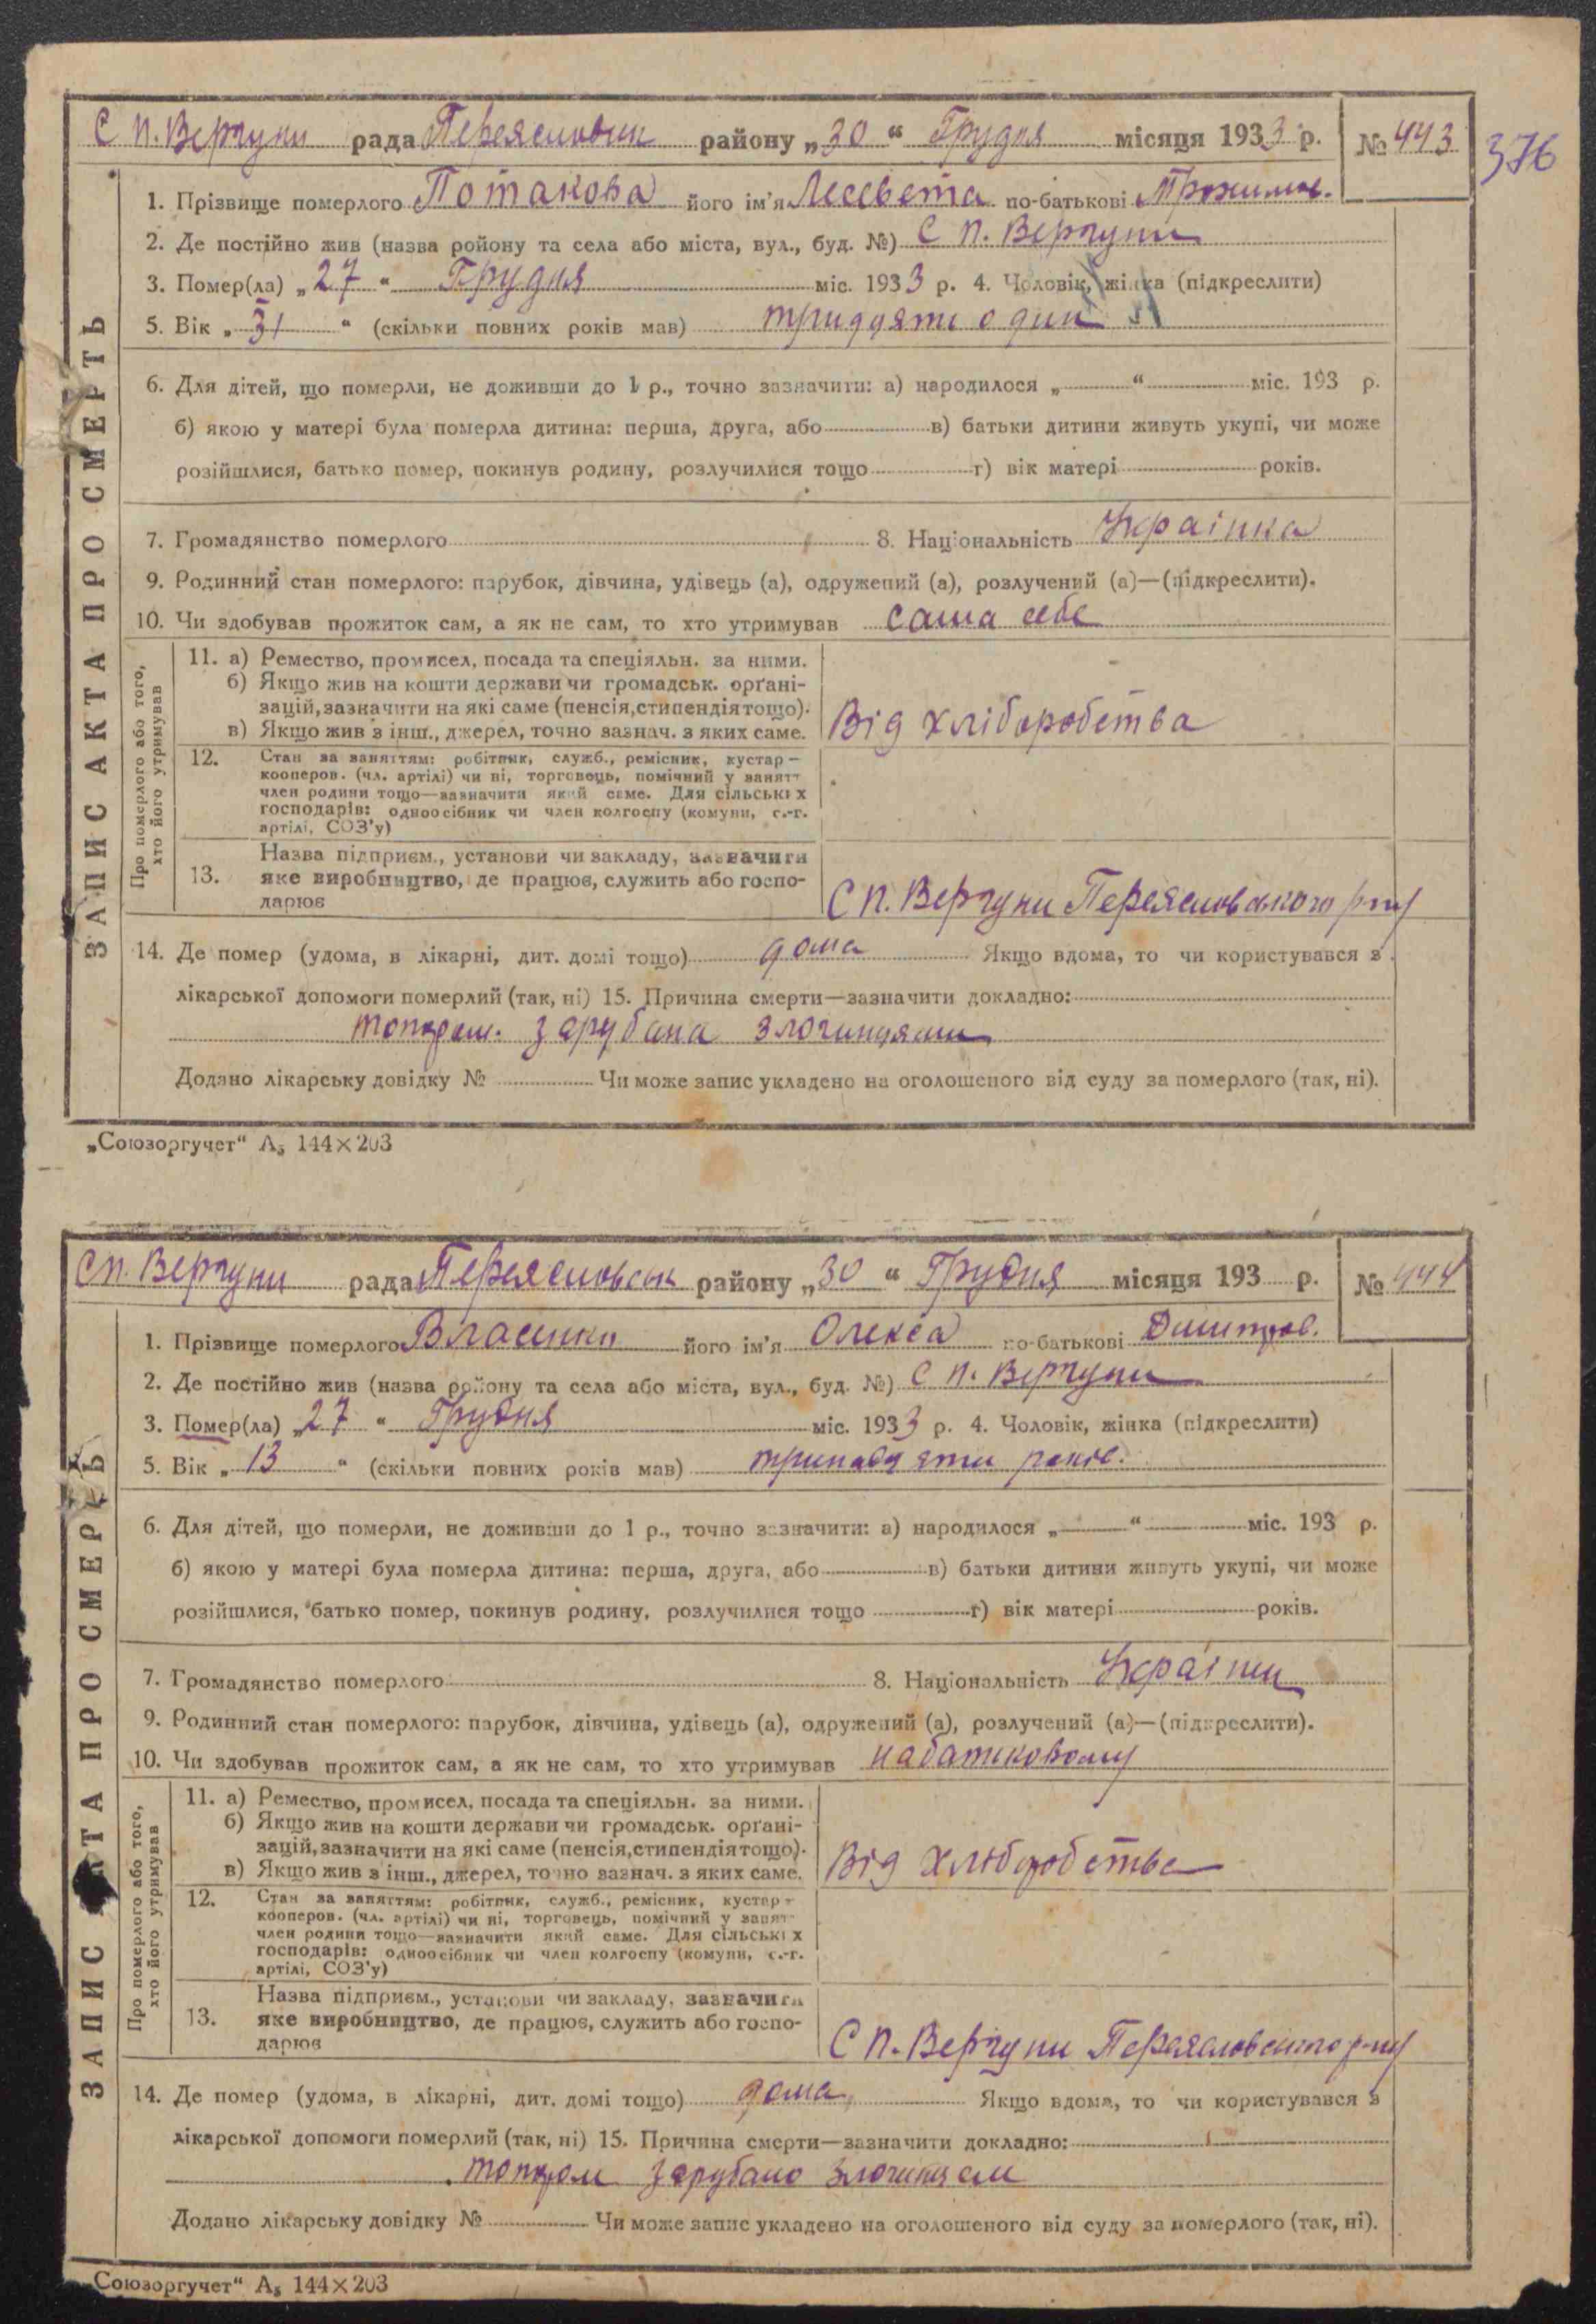 С П. Вергуни рада Переяславськ району „30“ Грудня місяця 1933 р. № 443
376
1. Прізвище померлого Потакова його ім'я Лесвета по-батькові
2. Де постійно жив (назва ройону та села або міста, вул., буд. №) С П. Вергуни
3. Помер(ла) „27“ Грудня міс. 1933 р. 4. Чоловік, жінка (підкреслити)
5. Вік „31“ (скільки повних років мав) тридцяти один
6. Для дітей, що померли, не доживши до 1 р., точно зазначити: а) народилося „ “ міс. 193 р.
б) якою у матері була померла дитина: перша, друга, або в) батьки дитини живуть укупі, чи може
розійшлися, батько помер, покинув родину, розлучилися тощо г) вік матері років.
7. Громадянство померлого 8. Національність Українка
9. Родинний стан померлого: парубок, дівчина, удівець (а), одружений (а), розлучений (а)—(підкреслити).
10. Чи здобував прожиток сам, а як не сам, то хто утримував сама себе
ЗАПИС АКТА ПРО СМЕРТЬ
Про померлого або того,
хто його утримував
11. а) Ремество, промисел, посада та спеціяльн. за ними.
б) Якщо жив на кошти держави чи громадськ. орґані-
зацій, зазначити на які саме (пенсія, стипендія тощо).
в) Якщо жив з інш., джерел, точно зазнач. з яких саме.
Від хліборобства
12. Стан за заняттям: робітник, служб., ремісник, кустар—
кооперов. (чл. артілі) чи ні, торговець, помічний у занятт
член родини тощо—зазначити який саме. Для сільських
господарів: одноосібник чи член колгоспу (комуни, с.-г.
артілі, СОЗ'у)
13. Назва підприєм., установи чи закладу, зазначити
яке виробництво, де працює, служить або госпо-
дарює
С П. Вергуни Переяславського р-ну
14. Де помер (удома, в лікарні, дит. домі тощо) дома Якщо вдома, то чи користувався з
лікарської допомоги померлий (так, ні) 15. Причина смерти—зазначити докладно:
топором зарубана злочинцями
Додано лікарську довідку № Чи може запис укладено на оголошеного від суду за померлого (так, ні).
„Союзоргучет“ А₅ 144×203
С П. Вергуни рада Переяславськ району „30“ Грудня місяця 193 р. № 444
1. Прізвище померлого Власенко його ім'я Олекса по-батькові Дмитров.
2. Де постійно жив (назва ройону та села або міста, вул., буд. №) С П. Вергуни
3. Помер(ла) „27“ Грудня міс. 1933 р. 4. Чоловік, жінка (підкреслити)
5. Вік „13“ (скільки повних років мав) тринадцяти років.
6. Для дітей, що померли, не доживши до 1 р., точно зазначити: а) народилося „ “ міс. 193 р.
б) якою у матері була померла дитина: перша, друга, або в) батьки дитини живуть укупі, чи може
розійшлися, батько помер, покинув родину, розлучилися тощо г) вік матері років.
7. Громадянство померлого 8. Національність Українц
9. Родинний стан померлого: парубок, дівчина, удівець (а), одружений (а), розлучений (а)—(підкреслити).
10. Чи здобував прожиток сам, а як не сам, то хто утримував на батьковому
ЗАПИС АКТА ПРО СМЕРТЬ
Про померлого або того,
хто його утримував
11. а) Ремество, промисел, посада та спеціяльн. за ними.
б) Якщо жив на кошти держави чи громадськ. орґані-
зацій, зазначити на які саме (пенсія, стипендія тощо).
в) Якщо жив з інш., джерел, точно зазнач. з яких саме.
Від хлюборобства
12. Стан за заняттям: робітник, служб., ремісник, кустар-
кооперов. (чл. артілі) чи ні, торговець, помічний у занят-
член родини тощо—зазначити який саме. Для сільських
господарів: одноосібник чи член колгоспу (комуни, с.-г.
артілі, СОЗ'у)
13. Назва підприєм., установи чи закладу, зазначити
яке виробництво, де працює, служить або госпо-
дарює
С П. Вергуни Переяславського р-ну
14. Де помер (удома, в лікарні, дит. домі тощо) дома Якщо вдома, то чи користувався з
лікарської допомоги померлий (так, ні) 15. Причина смерти—зазначити докладно:
топором зарубано злочинцем
Додано лікарську довідку № Чи може запис укладено на оголошеного від суду за померлого (так, ні).
„Союзоргучет“ А₅ 144×203